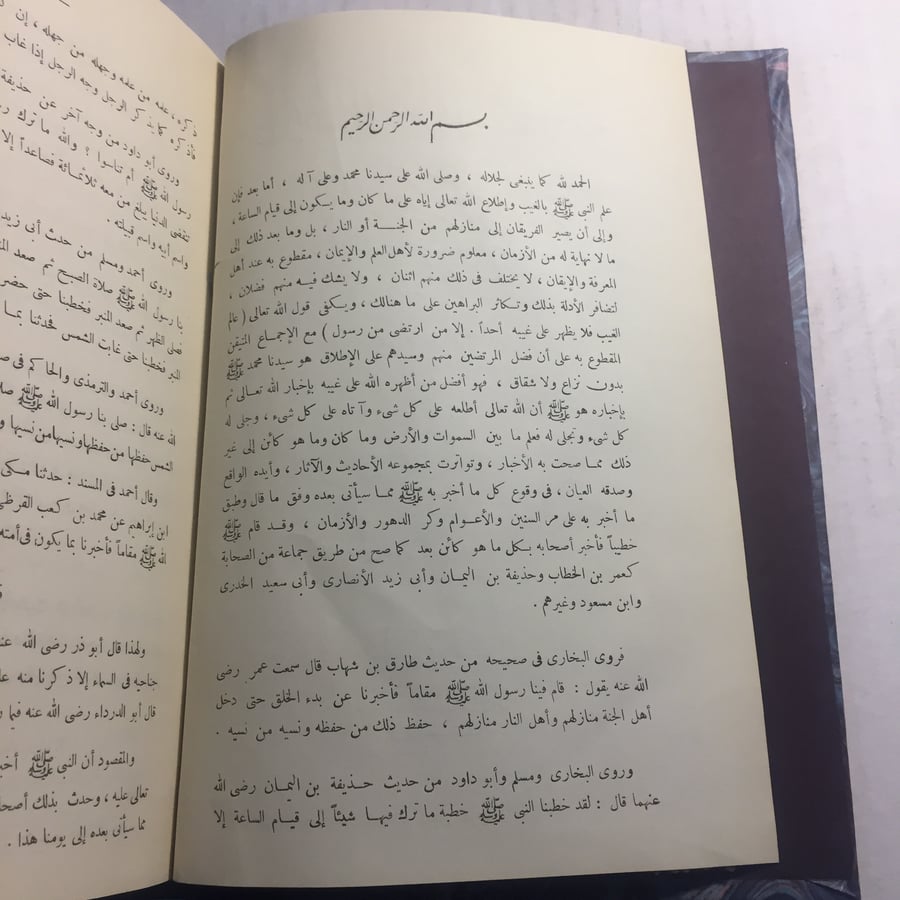 بسم الله الرحمن الرحيم
الحمد لله كما ينبغى لجلاله ، وصلى الله على سيدنا محمد وعلى آ له ، أما بعد فإن
علم النبي ﷺ بالغيب وإطلاع الله تعالى إياه على ما كان وما يـكون إلى قيام الساعة ،
وإلى أن يصير الفريقان إلى منازلهم من الجنـــة أو النار ، بل وما بعد ذلك إلى
ما لا نهاية له من الأزمان ، معلوم ضرورة لأهل العلم والإيمان ، مقطوع به عند أهل
المعرفة والإيقان ، لا يختلف فى ذلك منهم اثنان ، ولا يشك فيـه منهم فضلان ،
لتضافر الأدلة بذلك وتكاثر البراهين على ما هنالك ، ويـكفى قول الله تعالى ( عالم
الغيب فلا يظهر على غيبه أحداً . إلا من ارتضى من رسول ) مع الإجماع المتيقن
المقطوع به على أن فضل المرتضين منهم وسيدهم على الإطلاق هو سيدنا محمد ﷺ
بدون نزاع ولا شقاق ، فهو أفضل من أظهره الله على غيبه بإخبار الله تعـالى ثم
بإخباره هو ﷺ أن الله تعالى أطلعه على كل شىء وآ تاه على كل شىء ، وجلى له
كل شىء وتجلى له فعلم ما بين السموات والأرض وما كان وما هو كائن إلى غير
ذلك ممـا صحت به الأخبار ، وتواترت بمجموعه الأحاديث والآثار ، وأيده الواقع
وصدقه العيان ، فى وقوع كل ما أخبر به ﷺ ممـا سيأتى بعده وفق ما قال وطبق
ما أخبر به على مر السنين والأعـوام وكر الدهور والأزمان ، وقـد قام ﷺ
خطيباً فأخبر أصحابه بـكل ما هو كائن بعد كما صح من طريق جماعة من الصحابة
كعمر بن الخطاب وحذيفة بن اليمـان وأبى زيد الأنصارى وأبى سعيد الخدرى
وابن مسعود وغيرهم .
فروى البخارى فى صحيحه من حديث طارق بن شهاب قال سمعت عمر رضى
الله عنه يقول : قام فينا رسول الله ﷺ مقاماً فأخبرنا عن بدء الخلق حتى دخل
أهل الجنة منازلهم وأهل النار منازلهم ، حفظ ذلك من حفظه ونسيه من نسيه .
وروى البخارى ومسلم وأبو داود من حديث حـذيفة بن اليمـان رضى الله
عنهما قال : لقد خطبنا النبي ﷺ خطبة ما ترك فيهـا شيئاً إلى قيـام الساعة إلا
ذكره ، علمه من علمه وجهله من جهله ، إن
فأذكره كما يذكر الرجل وجه الرجل إذا غاب
وروى أبو داود من وجه آخر عن حذيفة
رسول الله ﷺ أم تناسوا ؟ والله ما ترك
تنقضى الدنيا يبلغ من معه ثلاثمائة فصاعداً إلا
واسم أبيه واسم قبيلته .
وروى أحمد ومسلم من حدث أبى زيد
بنا رسول الله ﷺ صلاة الصبح ثم صعد
فصلى الظهر ثم صعد المنبر فخطبنا حتى حضر
المنبر فخطبنا حتى غابت الشمس فحدثنا بمـا
وروى أحمد والترمذى والحاكم فى
الله عنه قال : صلى بنا رسول الله ﷺ
الشمس حفظها من حفظها ونسيها من نسيها
وقال أحمد فى المسند : حدثنا مكى
ابن إبراهيم عن محمد بن كعب القرظى
الله ﷺ مقاماً فأخبرنا بما يكون فى أمته
ولهذا قال أبو ذر رضى الله
جناحيه فى السماء إلا ذكرنا منه
قال أبو الدرداء رضى الله عنه فيما
والمقصود أن النبي ﷺ
تعالى عليه ، وحدث بذلك
مما سيأتى بعده إلى يومنا هذا .